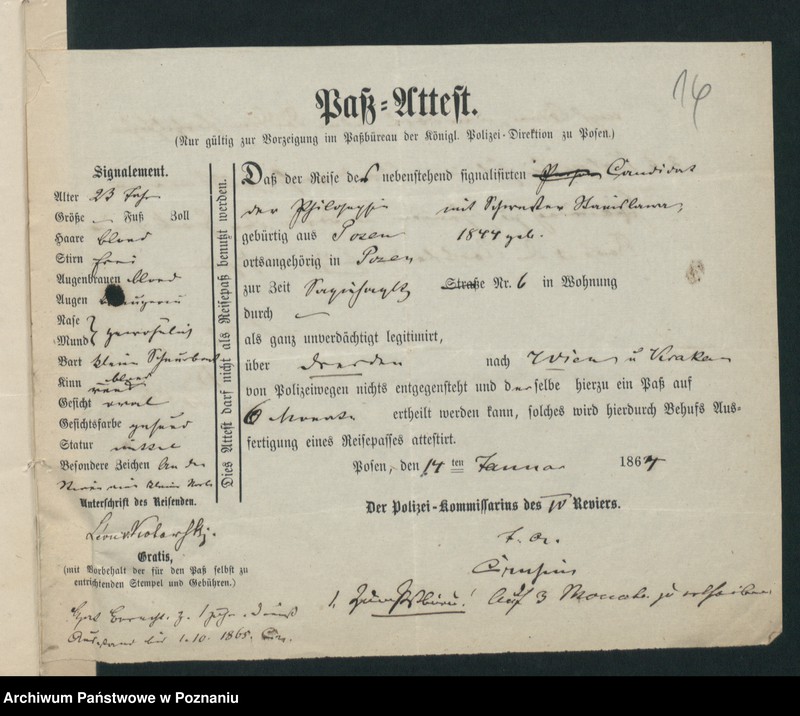 14
Paß-Attest.
(Nur gültig zur Vorzeigung im Paßbüreau der Königl. Polizei-Direktion zu Posen.)
Signalement.
Alter 23 Jahr
Größe — Fuß Zoll
Haare blond
Stirn frei
Augenbrauen blond
Augen
Nase
Mund gewöhnlich
Bart klein Schnurrbart
Kinn rund
Gesicht oval
Gesichtsfarbe gesund
Statur mittel
Besondere Zeichen An der
Unterschrift des Reisenden.
Gratis,
(mit Vorbehalt der für den Paß selbst zu
entrichtenden Stempel und Gebühren.)
1.10. 1865.
Dies Attest darf nicht als Reisepaß benutzt werden.
Daß der Reise des nebenstehend signalisirten Candidat
der Philosophie mit Schwester Stanislawa,
gebürtig aus Posen 1844 geb.
ortsangehörig in Posen
zur Zeit Straße Nr. 6 in Wohnung
durch —
als ganz unverdächtig legitimirt,
über Dresden nach Wien u Krakau
von Polizeiwegen nichts entgegensteht und derselbe hierzu ein Paß auf
6 Monate ertheilt werden kann, solches wird hierdurch Behufs Aus-
fertigung eines Reisepasses attestirt.
Posen, den 14 ten Januar 1864
Der Polizei-Kommissarius des IV Reviers.
1, Zum Paßbüreau! Auf 3 Monate zu
Archiwum Państwowe w Poznaniu